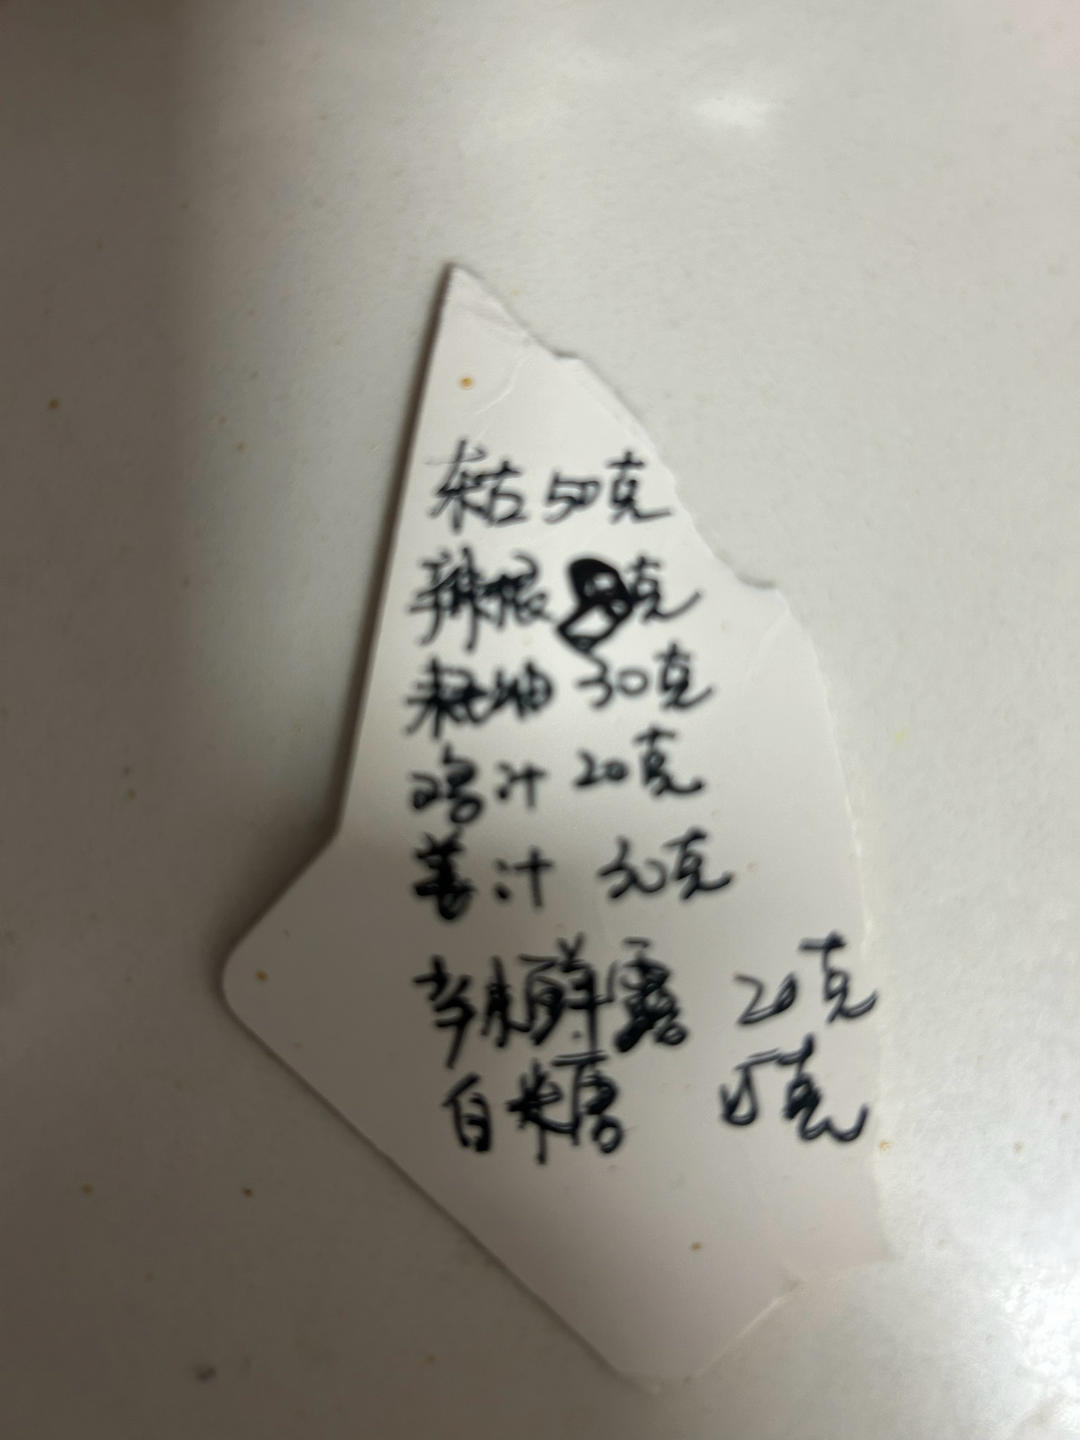 东古50克
辣根 克
耗油 30克
鸡汁 20克
姜汁 30克
鲜露 20克
白糖 5克